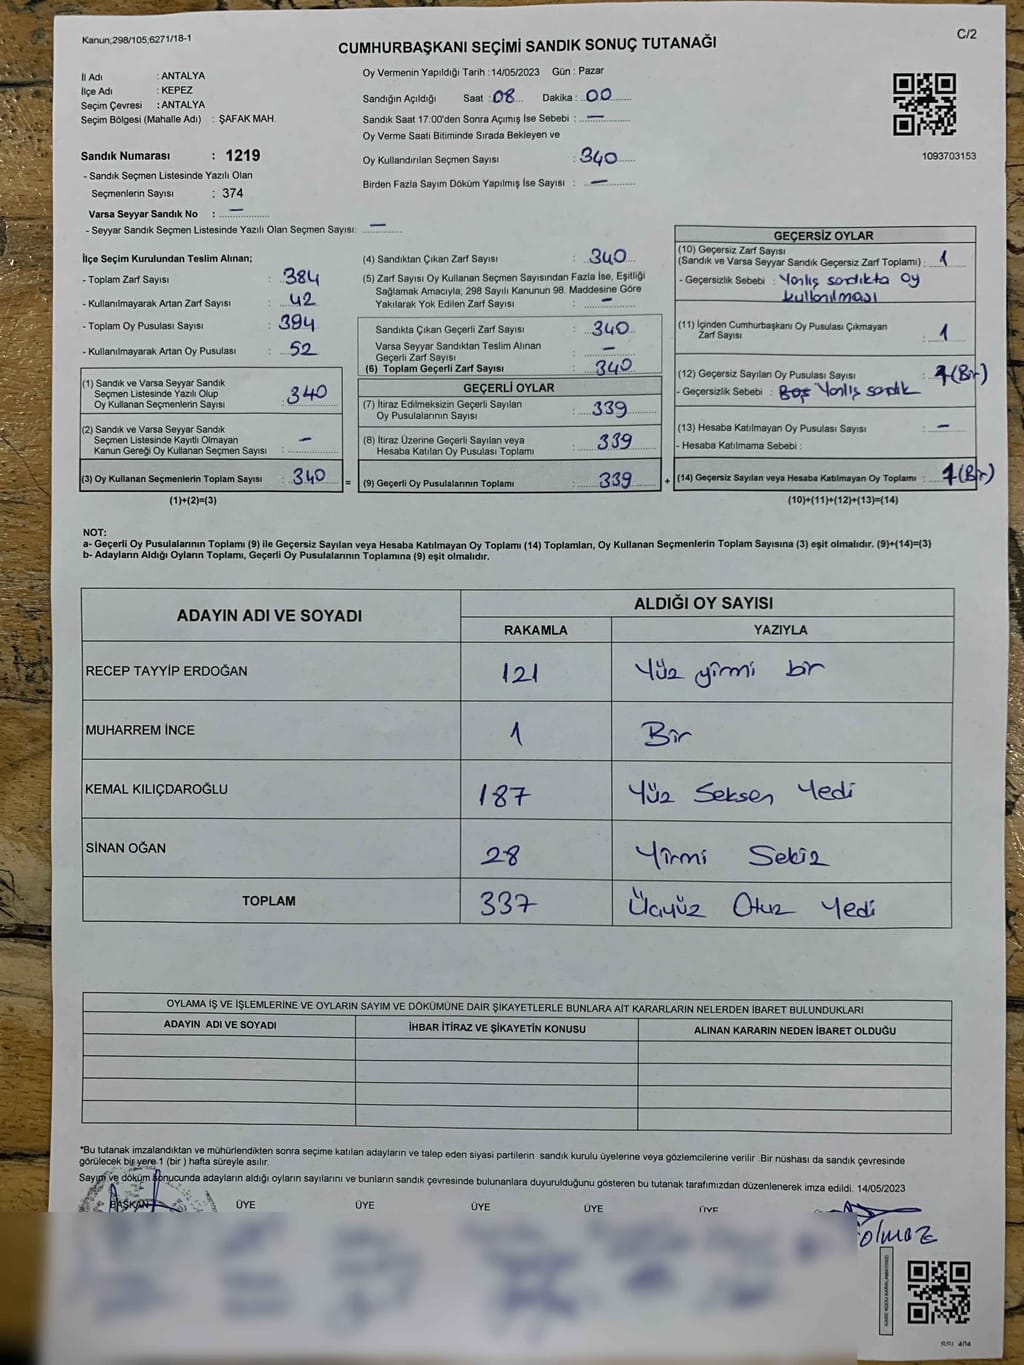 Kanun;298/105;6271/18-1
C/2
CUMHURBAŞKANI SEÇİMİ SANDIK SONUÇ TUTANAĞI
İl Adı : ANTALYA
İlçe Adı : KEPEZ
Seçim Çevresi : ANTALYA
Seçim Bölgesi (Mahalle Adı) : ŞAFAK MAH.
Sandık Numarası : 1219
- Sandık Seçmen Listesinde Yazılı Olan
Seçmenlerin Sayısı : 374
Varsa Seyyar Sandık No : —
- Seyyar Sandık Seçmen Listesinde Yazılı Olan Seçmen Sayısı: —
Oy Vermenin Yapıldığı Tarih : 14/05/2023 Gün : Pazar
Sandığın Açıldığı Saat : 08 Dakika : 00
Sandık Saat 17:00'den Sonra Açımış İse Sebebi : —
Oy Verme Saati Bitiminde Sırada Bekleyen ve
Oy Kullandırılan Seçmen Sayısı : 340
Birden Fazla Sayım Döküm Yapılmış İse Sayısı : —
1093703153
İlçe Seçim Kurulundan Teslim Alınan;
- Toplam Zarf Sayısı : 384
- Kullanılmayarak Artan Zarf Sayısı : 42
- Toplam Oy Pusulası Sayısı : 394
- Kullanılmayarak Artan Oy Pusulası : 52
(1) Sandık ve Varsa Seyyar Sandık
Seçmen Listesinde Yazılı Olup
Oy Kullanan Seçmenlerin Sayısı : 340
(2) Sandık ve Varsa Seyyar Sandık
Seçmen Listesinde Kayıtlı Olmayan
Kanun Gereği Oy Kullanan Seçmen Sayısı : —
(3) Oy Kullanan Seçmenlerin Toplam Sayısı : 340
(1)+(2)=(3)
(4) Sandıktan Çıkan Zarf Sayısı : 340
(5) Zarf Sayısı Oy Kullanan Seçmen Sayısından Fazla İse, Eşitliği
Sağlamak Amacıyla; 298 Sayılı Kanunun 98. Maddesine Göre
Yakılarak Yok Edilen Zarf Sayısı : —
Sandıkta Çıkan Geçerli Zarf Sayısı : 340
Varsa Seyyar Sandıktan Teslim Alınan
Geçerli Zarf Sayısı : —
(6) Toplam Geçerli Zarf Sayısı : 340
GEÇERLİ OYLAR
(7) İtiraz Edilmeksizin Geçerli Sayılan
Oy Pusulalarının Sayısı : 339
(8) İtiraz Üzerine Geçerli Sayılan veya
Hesaba Katılan Oy Pusulası Toplamı : 339
= (9) Geçerli Oy Pusulalarının Toplamı : 339 +
GEÇERSİZ OYLAR
(10) Geçersiz Zarf Sayısı
(Sandık ve Varsa Seyyar Sandık Geçersiz Zarf Toplamı) : 1
- Geçersizlik Sebebi : Yanlış sandıkta oy
kullanılması
(11) İçinden Cumhurbaşkanı Oy Pusulası Çıkmayan
Zarf Sayısı : 1
(12) Geçersiz Sayılan Oy Pusulası Sayısı : 1 (Bir)
- Geçersizlik Sebebi : Boş Yanlış sandık
(13) Hesaba Katılmayan Oy Pusulası Sayısı : —
- Hesaba Katılmama Sebebi :
(14) Geçersiz Sayılan veya Hesaba Katılmayan Oy Toplamı : 1 (Bir)
(10)+(11)+(12)+(13)=(14)
NOT:
a- Geçerli Oy Pusulalarının Toplamı (9) ile Geçersiz Sayılan veya Hesaba Katılmayan Oy Toplamı (14) Toplamları, Oy Kullanan Seçmenlerin Toplam Sayısına (3) eşit olmalıdır. (9)+(14)=(3)
b- Adayların Aldığı Oyların Toplamı, Geçerli Oy Pusulalarının Toplamına (9) eşit olmalıdır.
ADAYIN ADI VE SOYADI
ALDIĞI OY SAYISI
RAKAMLA YAZIYLA
RECEP TAYYİP ERDOĞAN 121 Yüz yirmi bir
MUHARREM İNCE 1 Bir
KEMAL KILIÇDAROĞLU 187 Yüz Seksen Yedi
SİNAN OĞAN 28 Yirmi Sekiz
TOPLAM 337 Üçyüz Otuz Yedi
OYLAMA İŞ VE İŞLEMLERİNE VE OYLARIN SAYIM VE DÖKÜMÜNE DAİR ŞİKAYETLERLE BUNLARA AİT KARARLARIN NELERDEN İBARET BULUNDUKLARI
ADAYIN ADI VE SOYADI İHBAR İTİRAZ VE ŞİKAYETİN KONUSU ALINAN KARARIN NEDEN İBARET OLDUĞU
*Bu tutanak imzalandıktan ve mühürlendikten sonra seçime katılan adayların ve talep eden siyasi partilerin sandık kurulu üyelerine veya gözlemcilerine verilir .Bir nüshası da sandık çevresinde
görülecek bir yere 1 (bir ) hafta süreyle asılır.
Sayım ve döküm sonucunda adayların aldığı oyların sayılarını ve bunların sandık çevresinde bulunanlara duyurulduğunu gösteren bu tutanak tarafımızdan düzenlenerek imza edildi. 14/05/2023
BAŞKAN ÜYE ÜYE ÜYE ÜYE ÜYE